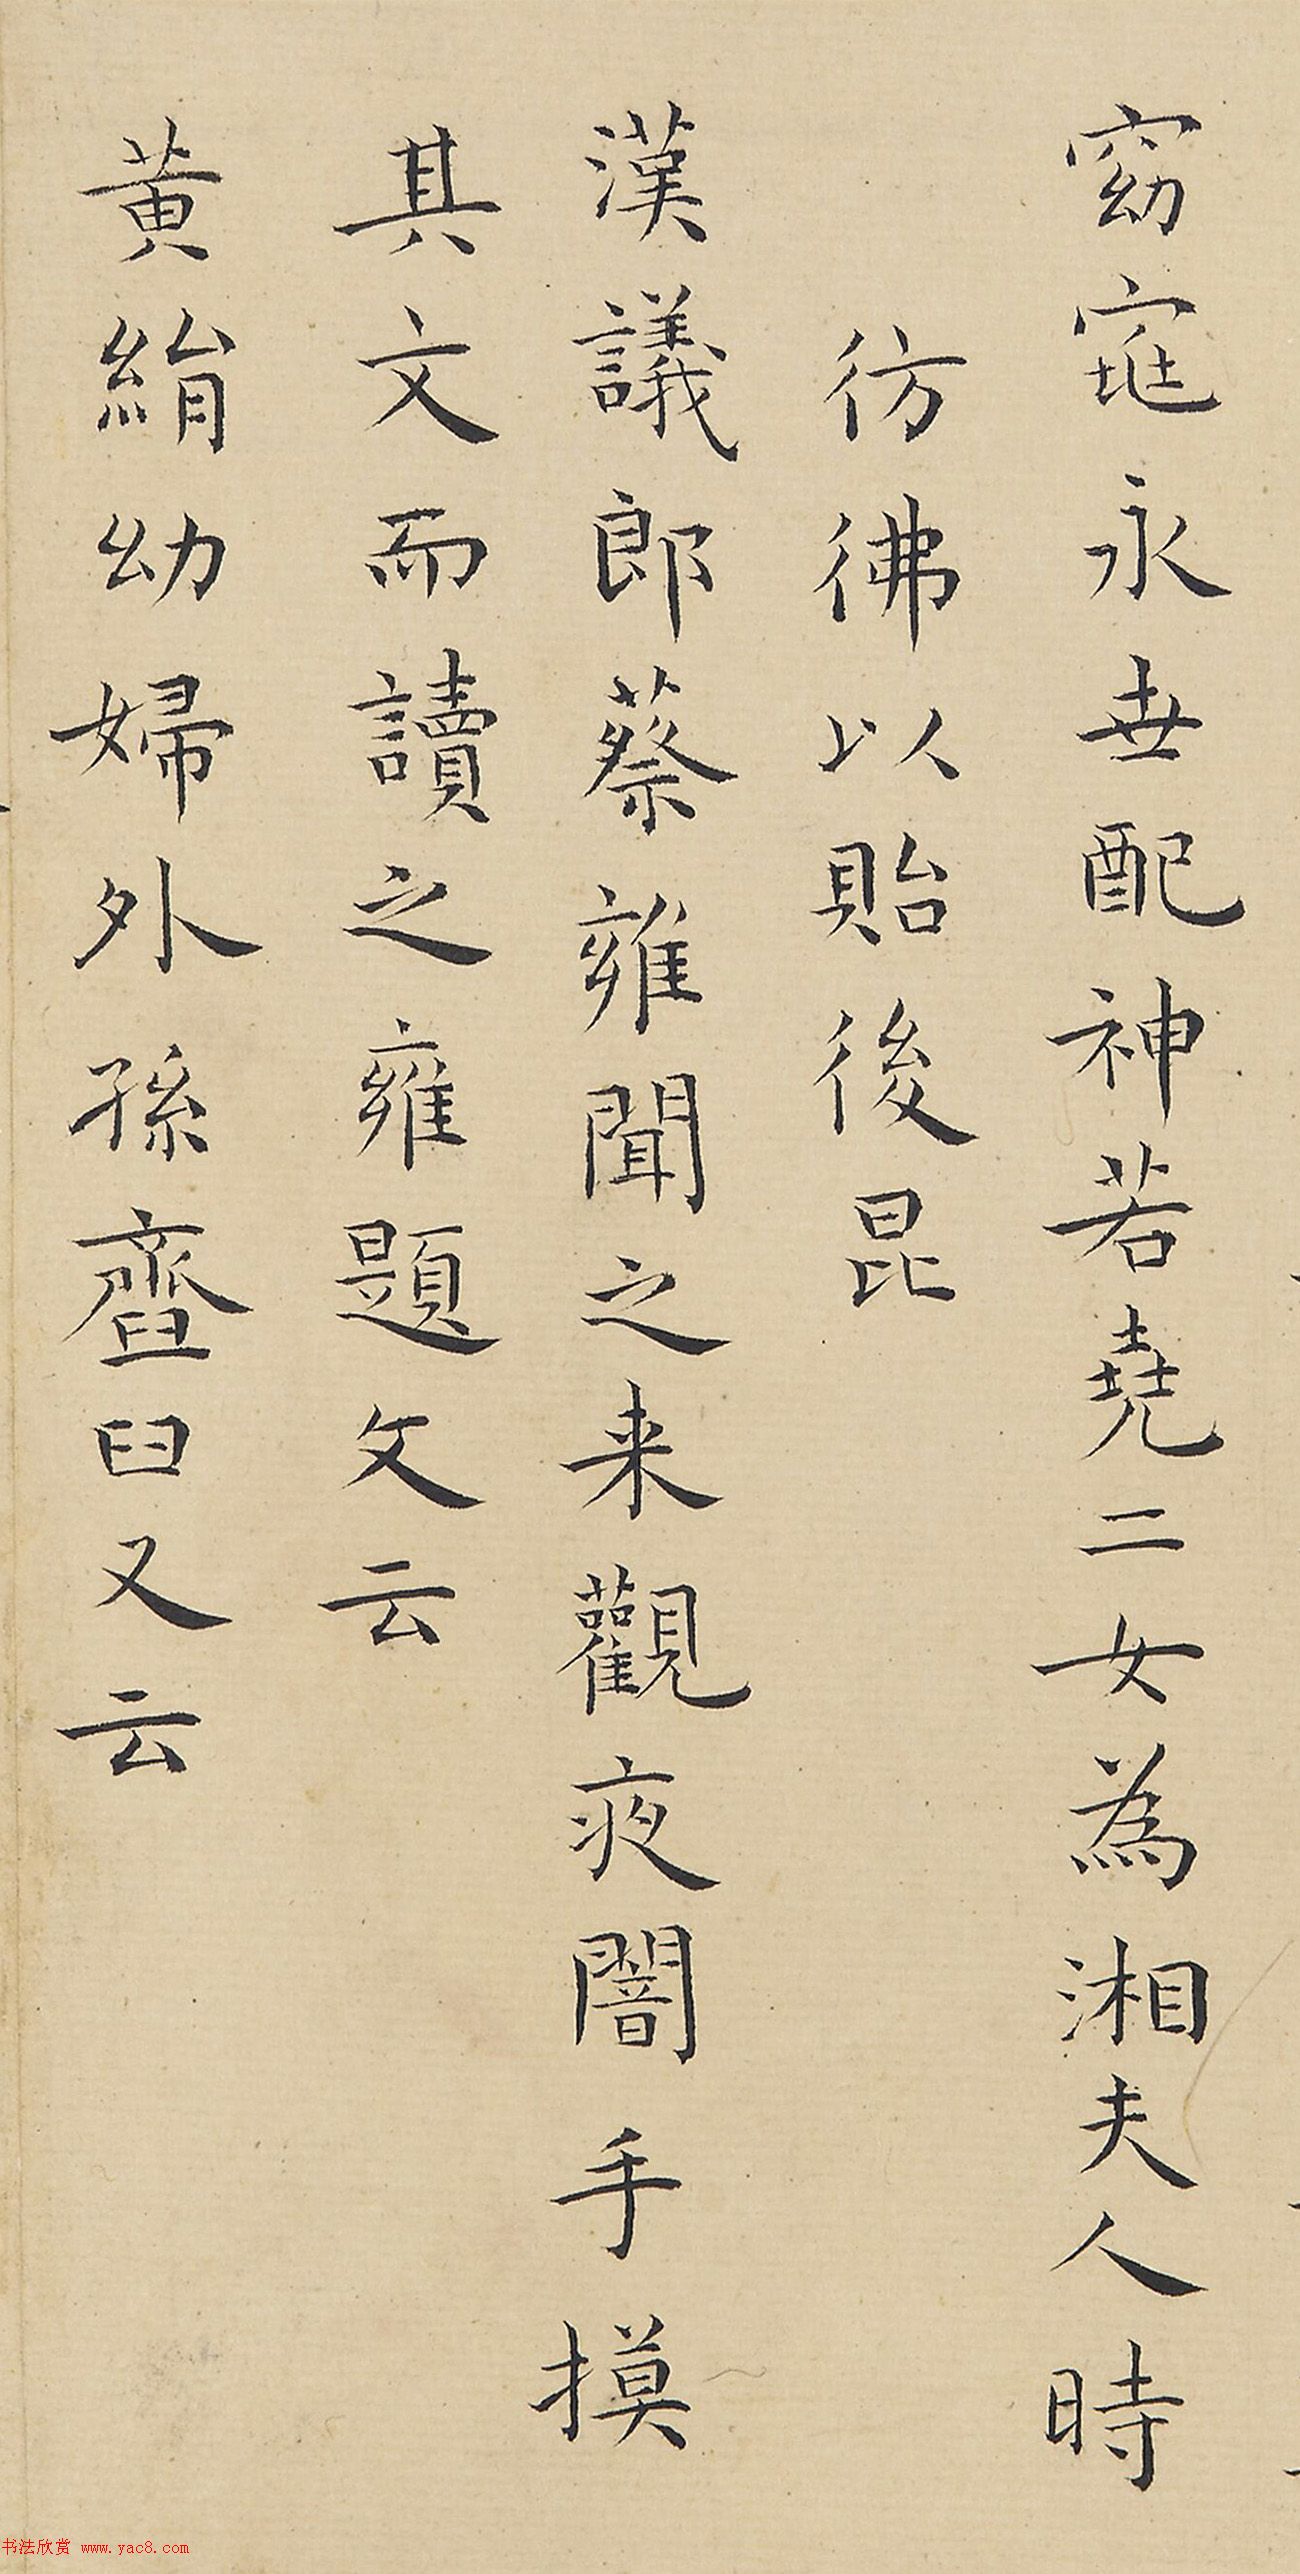 窈窕永世配神若堯二女為湘夫人時
彷彿以貽後昆
漢議郎蔡雍聞之来觀夜闇手摸
其文而讀之雍題文云
黃絹幼婦外孫齏臼又云
书法欣赏 www.yac8.com